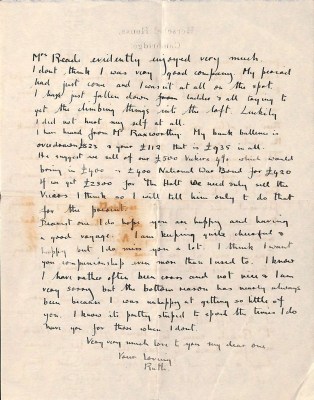 Mrs Reade evidently enjoyed very much.
I dont think I was very good company. My period
had just come and I wasnt at all on the spot.
I had just fallen down from ladder & all trying to
get the climbing things into the loft. Luckily
I did not hurt my self at all.
I have heard from Mr My bank balance is
overdrawn £823 & your £112 that is £935 in all.
He suggest we sell of our £500 Vickers 4% which would
bring in £400 & £400 National War Bond for £420
If we get £2300 for The Holt we need only sell the
Vicars I think so I will tell him only to do that
for the present.
Dearest one I do hope you are happy and having
a good voyage. I am keeping quite cheerful &
happy but I do miss you a lot. I think I want
your companionship even more than I used to. I know
I have rather often been cross and not nice & I am
very sorry but the bottom reason has nearly always
been because I was unhappy at getting so little of
you. I know its pretty stupid to spoil the times I do
have you for those when I dont.
Very very much love to you my dear one
Your loving
Ruth